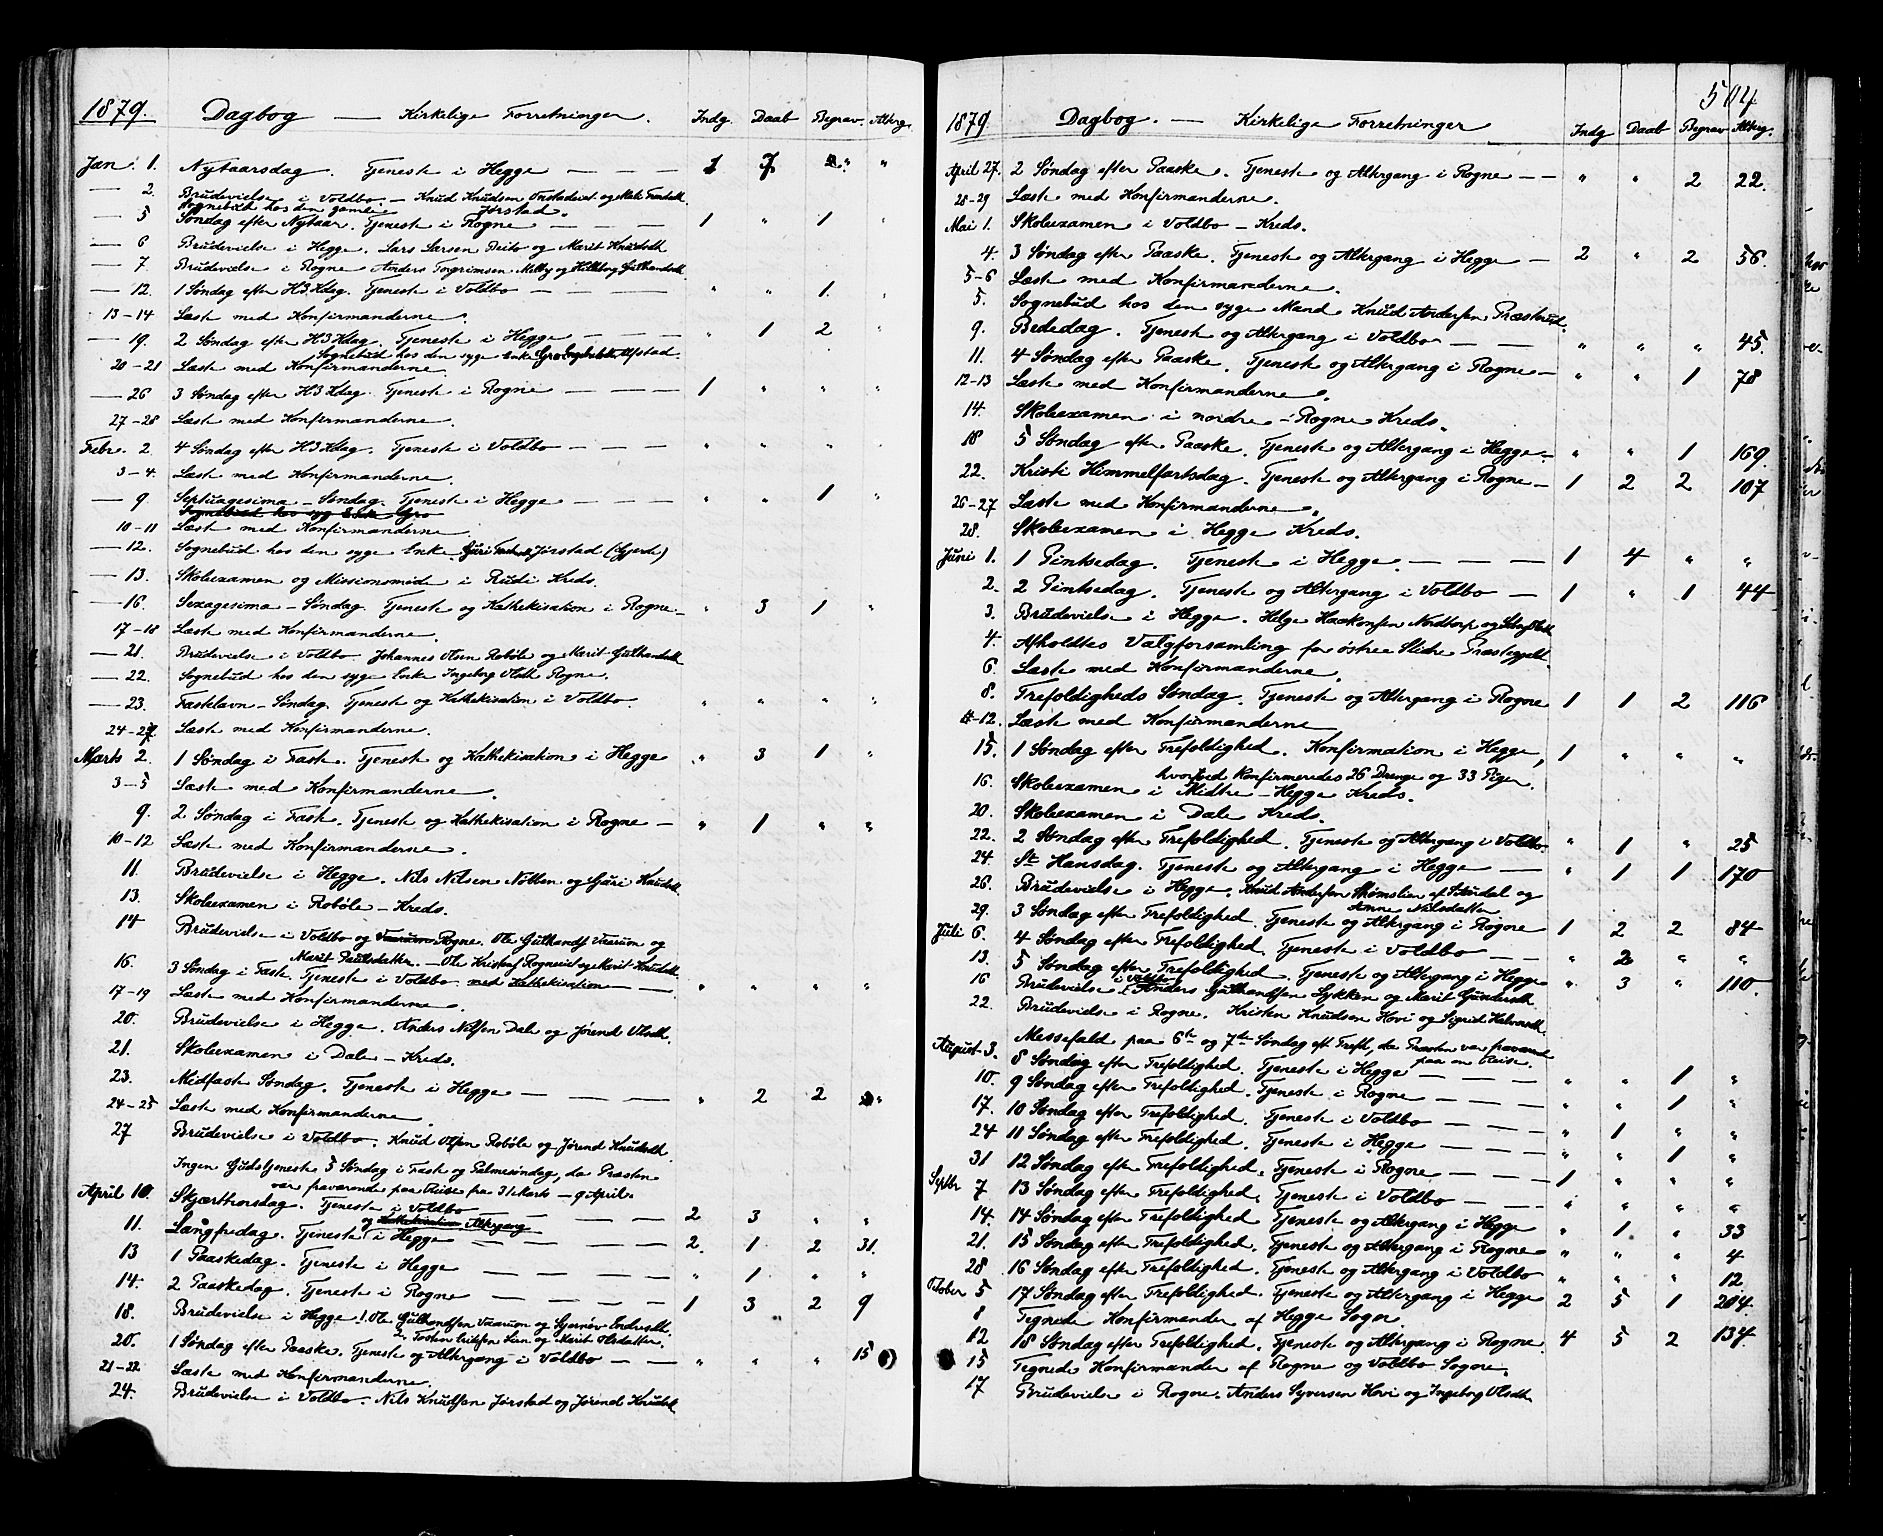 1879. Dagbog — Kirkelige Forretninger. Indg. Daab Begrav. Altrg.
Jan. 1. Nytaarsdag. Tjeneste i Hegge — — — 1 7 " "
— 2. Brudevielse i Voldbo — Knud Knudsen
Sognebud hos den gamle Jørstad.
— 5 Søndag efter Nytaar. Tjeneste i Rogne — — — 1 " 1 "
— 6 Brudevielse i Hegge. Lars Larsen Beito og Marit Knudsdtr
— 7 Brudevielse i Rogne Anders Torgrimsen Melby og Gulhandsdtr
— 12. 1 Søndag efter H3Kdag. Tjeneste i Voldbo — — — " " 1. "
13-14 Læst med Konfirmanderne.
— 19. 2 Søndag efter H3Kdag. Tjeneste i Hegge — — — " 1 2 "
Sognebud hos den syge Enke Alfstad.
20-21 Læst med Konfirmanderne.
— 26 3 Søndag efter H3Kdag. Tjeneste i Rogne — — — 1 " " "
27-28 Læst med Konfirmanderne.
Febr. 2. 4 Søndag efter H3Kdag. Tjeneste i Voldbo — — — " " " "
3-4. Læst med Konfirmanderne.
— 9 Septuagesima-Søndag. Tjeneste i Hegge — — — " " 1 "
Sognebud hos syg Enke Gro
10-11 Læst med Konfirmanderne
— 12. Sognebud hos den syge Enke Guri Jørstad (Gjerde)
— 13. Skoleexamen og Missionsmøde i Rudi Kreds.
— 16. Sexagesima-Søndag. Tjeneste og Kathekisation i Rogne — " 3 1 "
17-18 Læst med Konfirmanderne.
— 21. Brudevielse i Voldbo. Johannes Olsen Robøle og Marit Gulhandsdtr
— 22. Sognebud hos den syge Enke Ingeborg Olsdtr Rogne.
— 23. Fastelavn-Søndag. Tjeneste og Kathekisation i Voldbo. " " " "
24-27 Læst med Konfirmanderne.
Marts 2. 1 Søndag i Fast. Tjeneste og Kathekisation i Hegge " 3 1 "
3-5 Læst med Konfirmanderne.
9. 2 Søndag i Fast. Tjeneste og Kathekisation i Rogne — " 1 " "
10-12 Læst med Konfirmanderne.
11. Brudevielse i Hegge. Nils Nilsen Nøtten og Guri Knudsdtr
13. Skoleexamen i Robøle-Kreds.
14 Brudevielse i Voldbo og Rogne. Ole Gulhandsf Vaarum og
Marit Paulsdatter. — Ole Kristensf Rogne og Marit Knudsdtr
16. 3 Søndag i Fast. Tjeneste i Voldbo med Kathekisation — — " " " "
17-19 Læst med Konfirmanderne.
20. Brudevielse i Hegge. Anders Nilsen Dale og Jørend Olsdtr.
21. Skoleexamen i Dale-Kreds.
23. Midfaste Søndag. Tjeneste i Hegge — — — " 2 2 "
24-25 Læst med Konfirmanderne.
27 Brudevielse i Voldbo. Knud Olsen Robøle og Jørend Knudsdtr.
Ingen Gudstjeneste 5 Søndag i Fast og Palmesøndag, da Præsten
var fraværende paa Reise fra 31 Marts - 9 April.
April 10. Skjærthorsdag. Tjeneste i Voldbo — — — 2 3 " "
og Kathekisation Altergang
11. Langfredag. Tjeneste i Hegge — — — 2. 1 2 31.
13 1 Paaskedag. Tjeneste i Hegge — — — " 1 " "
14. 2 Paaskedag. Tjeneste i Rogne — — — 1 3 2 9
18. Brudevielse i Hegge 1. Ole Gulhandsen Vaarum og Gjernøv Endresdtr.
2. Tosten Eriksen Lien og Marit Olsdatter.
20. 1 Søndag efter Paaske. Tjeneste og Altergang i Voldbo — — " " " 15
21-22 Læst med Konfirmanderne.
24. Brudevielse i Voldbo. Nils Knudsen Jørstad og Jørend Knudsdtr
504
1879 Dagbog. — Kirkelige Forretninger Indg Daab Begrav Altrg.
April 27. 2 Søndag efter Paaske. Tjeneste og Altergang i Rogne — — " " 2 22.
28-29 Læst med Konfirmanderne.
Mai 1. Skoleexamen i Voldbo-Kreds.
4. 3 Søndag efter Paaske. Tjeneste og Altergang i Hegge — 2 " 2 56.
5-6 Læst med Konfirmanderne.
5. Sognebud hos den syge Mand Knud Andersen Præstrud.
9. Bededag. Tjeneste og Altergang i Voldbo — — " " " 45.
11. 4 Søndag efter Paaske. Tjeneste og Altergang i Rogne — " " 1 78
12-13 Læst med Konfirmanderne.
14. Skoleexamen i nordre-Rogne Kreds.
18 5 Søndag efter Paaske. Tjeneste og Altergang i Hegge — " " 1 169.
22. Kristi Himmelfartsdag. Tjeneste og Altergang i Rogne — 1 2 2 107
26-27 Læst med Konfirmanderne.
28. Skoleexamen i Hegge Kreds.
Juni 1. 1 Pintsedag. Tjeneste i Hegge. — — — 1 4 " "
2. 2 Pintsedag. Tjeneste og Altergang i Voldbo — 1 " 1 44
3. Brudevielse i Hegge. Helge Haakonsen Nordtorp og
4. Afholdtes Valgforsamling for østre Slidre Præstegjeld.
6. Læst med Konfirmanderne.
8. Trefoldigheds Søndag. Tjeneste og Altergang i Rogne 1 1 2 116
11-12. Læst med Konfirmanderne
15. 1 Søndag efter Trefoldighed. Konfirmation i Hegge, 1 " " "
hvorved Konfirmeredes 26 Drenge og 33 Piger.
16. Skoleexamen i Midtre-Hegge Kreds.
20. Skoleexamen i Dale Kreds.
22. 2 Søndag efter Trefoldighed. Tjeneste og Altergang i Voldbo. " 1 " 25
24. St. Hansdag. Tjeneste og Altergang i Hegge — " 1 1 170
26. Brudevielse i Hegge. Knud Andersen Strømslien af og
Anne Nilsdatter
29. 3 Søndag efter Trefoldighed. Tjeneste og Altergang i Rogne 1 2 2 84
Juli 6. 4 Søndag efter Trefoldighed. Tjeneste i Voldbo — — " 2 " "
13. 5 Søndag efter Trefoldighed. Tjeneste og Altergang i Hegge " 3 " 110.
16 Brudevielse i Voldbo Anders Gulhandsen Lykken og Marit Gundersdtr
22. Brudevielse i Rogne. Kristen Knudsen Hovi og Sigrid Halvorsdtr.
Messefald paa 6te og 7de Søndag eft Trefh, da Præsten var fraværende
paa en Reise.
August 3. 8 Søndag efter Trefoldighed. Tjeneste i Hegge — — — " " 1 "
10. 9 Søndag efter Trefoldighed. Tjeneste i Rogne — — — " " 1 "
17. 10 Søndag efter Trefoldighed. Tjeneste i Voldbo — — — " 1 " "
24 11 Søndag efter Trefoldighed. Tjeneste i Hegge — — — " " 1 "
31 12 Søndag efter Trefoldighed. Tjeneste i Rogne — — — 1 " " "
Septbr 7 13 Søndag efter Trefoldighed. Tjeneste i Voldbo — — " " " "
14. 14 Søndag efter Trefoldighed Tjeneste og Altergang i Hegge " 1 " 33
21. 15 Søndag efter Trefoldighed. Tjeneste og Altergang i Rogne " " " 4
28 16 Søndag efter Trefoldighed. Tjeneste og Altergang i Voldbo " " " 12
Oktober 5 17 Søndag efter Trefoldighed. Tjeneste og Altergang i Hegge 2 5 1 204.
8 Tegnede Konfirmander af Hegge Sogn.
12 18 Søndag efter Trefoldighed. Tjeneste og Altergang i Rogne 4 5 2 134.
15 Tegnede Konfirmander af Rogne og Voldbo Sogne.
17 Brudevielse i Rogne. Anders Syversen Hovi og Ingeborg Olsdtr